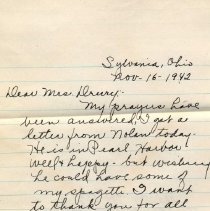 Sylvania, Ohio
Nov-16-1942
Dear Mrs. Drury.
My prayers have
been answered, I got a
letter from Nolan today.
He is in Pearl Harbor
well & happy - but wishing
he could have some of
my spagetti I want
to thank you for all